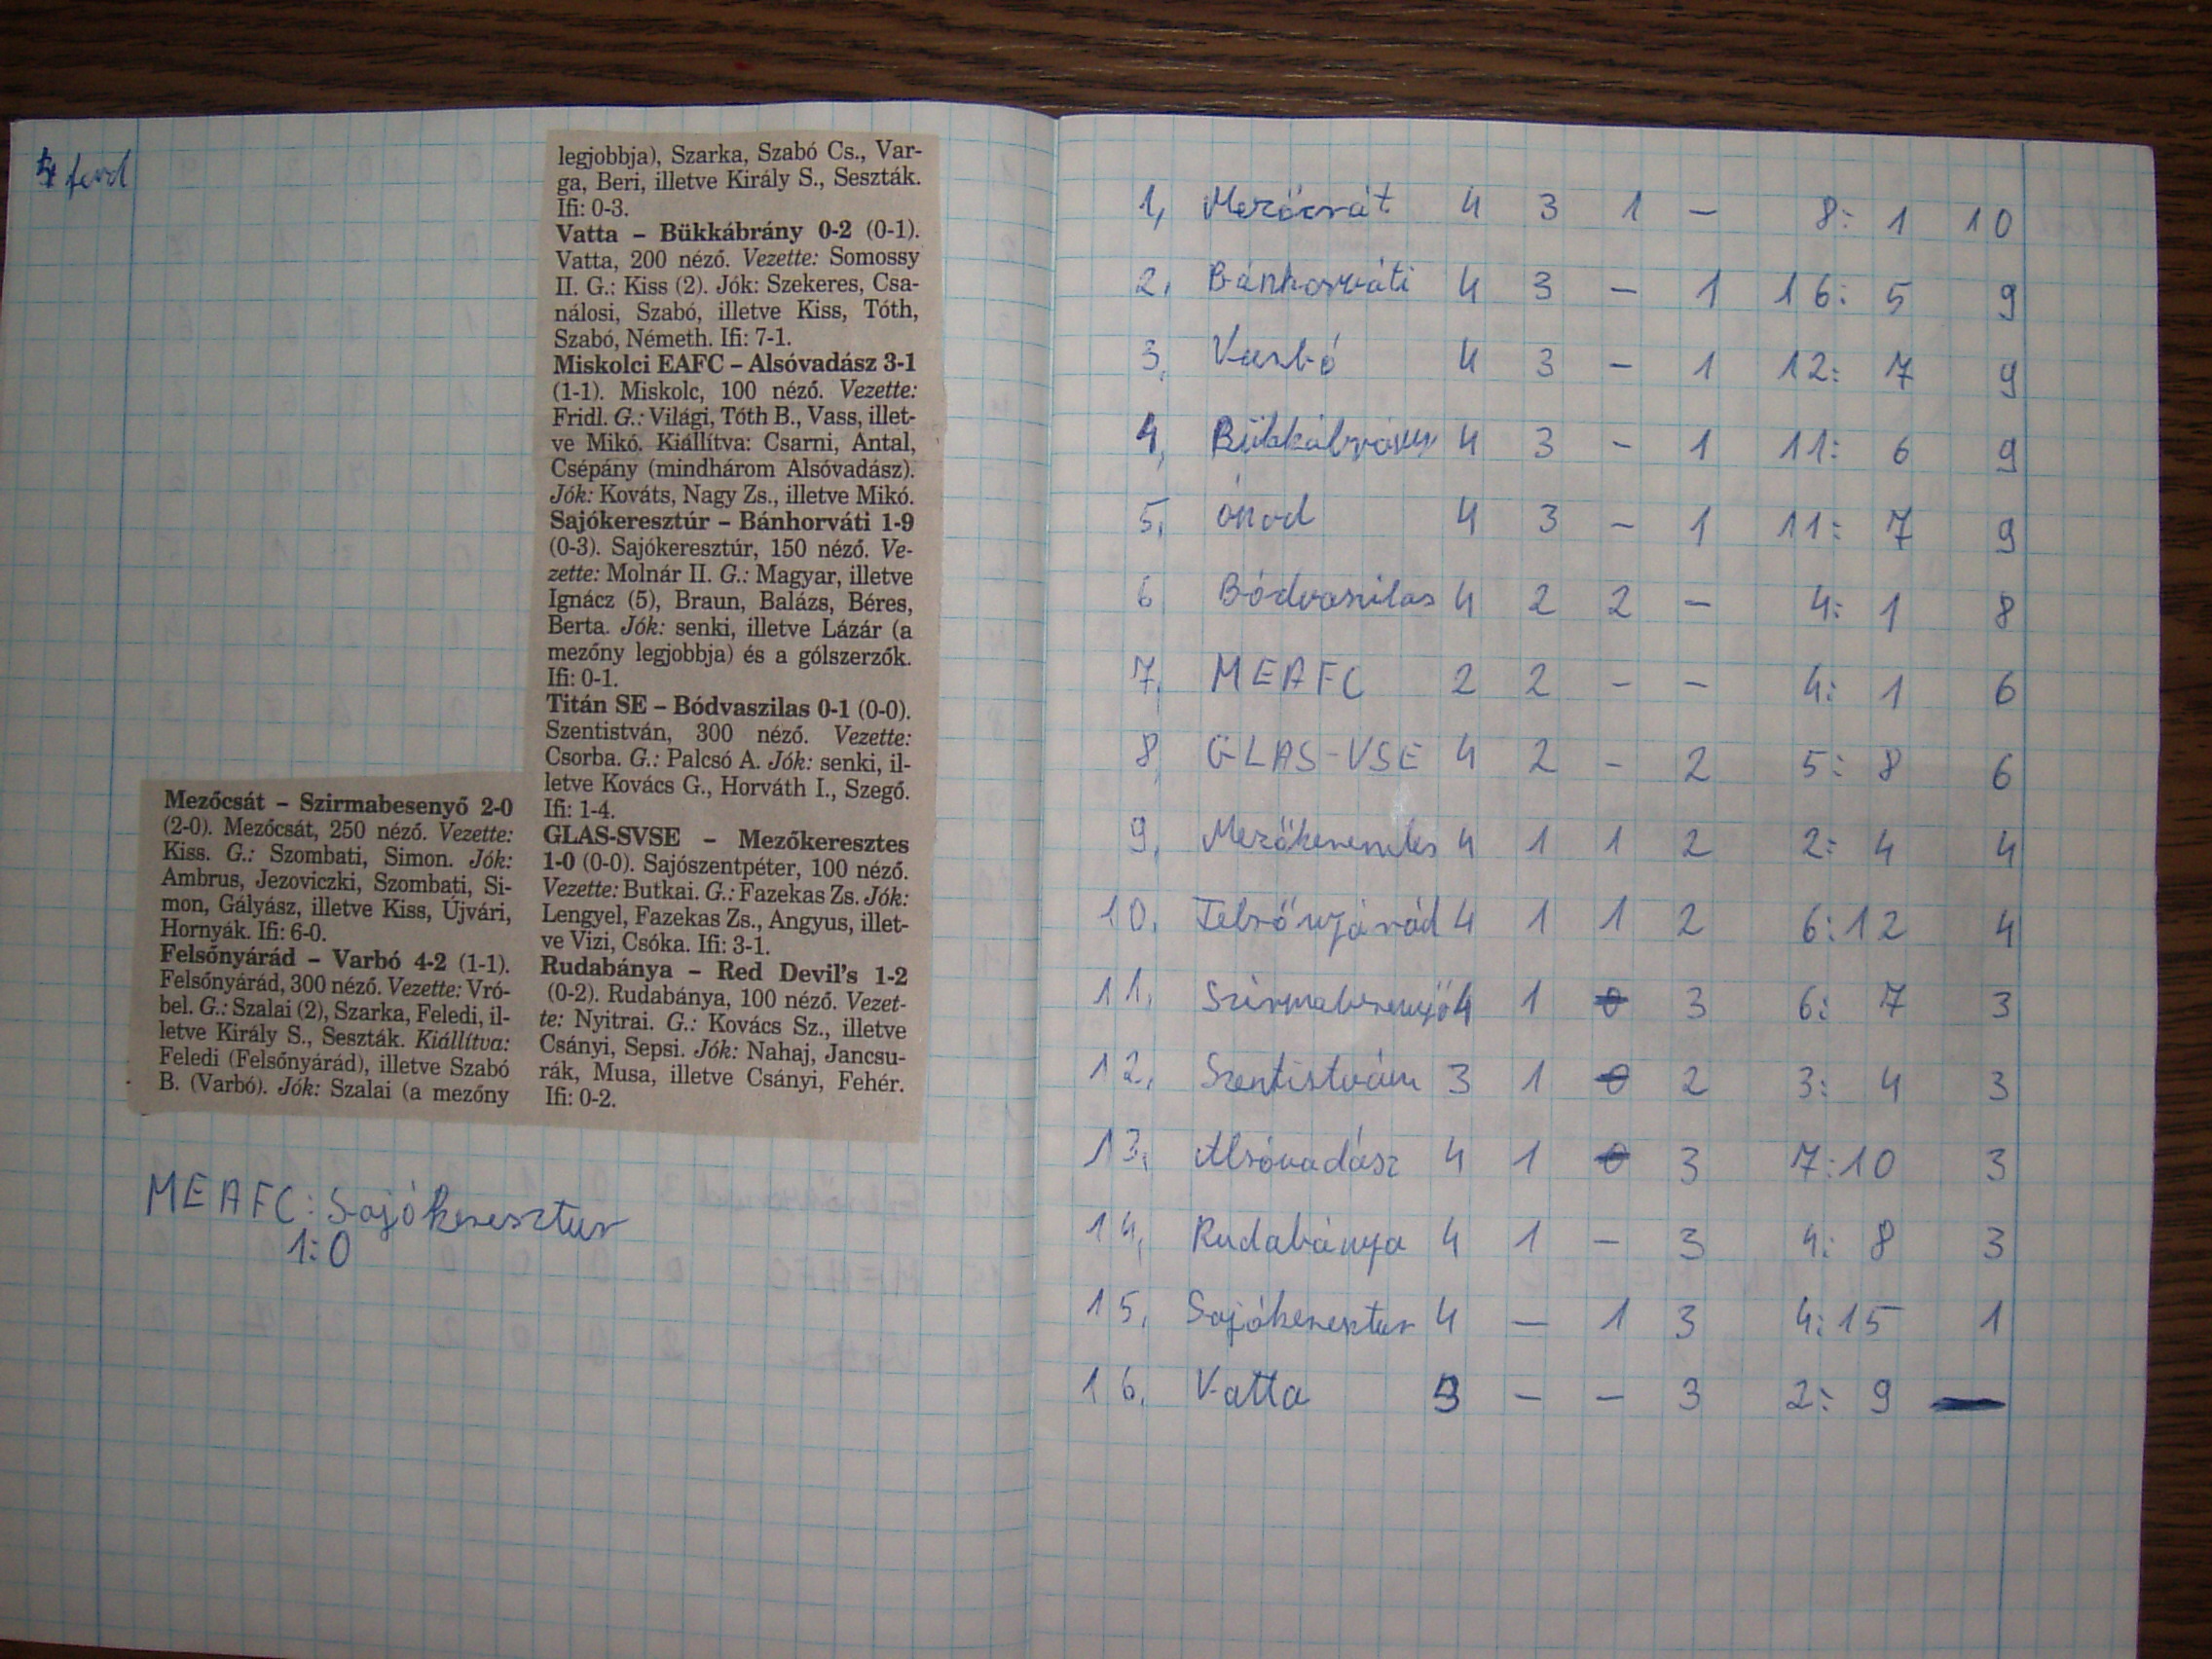 4 ford
Mezőcsát – Szirmabesenyő 2-0
(2-0). Mezőcsát, 250 néző. Vezette:
Kiss. G.: Szombati, Simon. Jók:
Ambrus, Jezoviczki, Szombati, Si-
mon, Gályász, illetve Kiss, Újvári,
Hornyák. Ifi: 6-0.
Felsőnyárád – Varbó 4-2 (1-1).
Felsőnyárád, 300 néző. Vezette: Vró-
bel. G.: Szalai (2), Szarka, Feledi, il-
letve Király S., Seszták. Kiállítva:
Feledi (Felsőnyárád), illetve Szabó
B. (Varbó). Jók: Szalai (a mezőny
legjobbja), Szarka, Szabó Cs., Var-
ga, Beri, illetve Király S., Seszták.
Ifi: 0-3.
Vatta – Bükkábrány 0-2 (0-1).
Vatta, 200 néző. Vezette: Somossy
II. G.: Kiss (2). Jók: Szekeres, Csa-
nálosi, Szabó, illetve Kiss, Tóth,
Szabó, Németh. Ifi: 7-1.
Miskolci EAFC – Alsóvadász 3-1
(1-1). Miskolc, 100 néző. Vezette:
Fridl. G.: Világi, Tóth B., Vass, illet-
ve Mikó. Kiállítva: Csarni, Antal,
Csépány (mindhárom Alsóvadász).
Jók: Kováts, Nagy Zs., illetve Mikó.
Sajókeresztúr – Bánhorváti 1-9
(0-3). Sajókeresztúr, 150 néző. Ve-
zette: Molnár II. G.: Magyar, illetve
Ignácz (5), Braun, Balázs, Béres,
Berta. Jók: senki, illetve Lázár (a
mezőny legjobbja) és a gólszerzők.
Ifi: 0-1.
Titán SE – Bódvaszilas 0-1 (0-0).
Szentistván, 300 néző. Vezette:
Csorba. G.: Palcsó A. Jók: senki, il-
letve Kovács G., Horváth I., Szegő.
Ifi: 1-4.
GLAS-SVSE – Mezőkeresztes
1-0 (0-0). Sajószentpéter, 100 néző.
Vezette: Butkai. G.: Fazekas Zs. Jók:
Lengyel, Fazekas Zs., Angyus, illet-
ve Vizi, Csóka. Ifi: 3-1.
Rudabánya – Red Devil's 1-2
(0-2). Rudabánya, 100 néző. Vezet-
te: Nyitrai. G.: Kovács Sz., illetve
Csányi, Sepsi. Jók: Nahaj, Jancsu-
rák, Musa, illetve Csányi, Fehér.
Ifi: 0-2.
MEAFC: Sajókeresztur
1:0
1, Mezőcsát 4 3 1 – 8: 1 10
2. Bánhorváti 4 3 – 1 16: 5 9
3, Varbó 4 3 – 1 12: 7 9
4, Bükkábrány 4 3 – 1 11: 6 9
5. Ónod 4 3 – 1 11: 7 9
6 Bódvaszilas 4 2 2 – 4: 1 8
7. MEAFC 2 2 – – 4: 1 6
8, GLAS-VSE 4 2 – 2 5: 8 6
9. Mezőkeresztes 4 1 1 2 2: 4 4
10. Felsőnyárád 4 1 1 2 6:12 4
11. Szirmabesenyő 4 1 – 3 6: 7 3
12. Szentistván 3 1 – 2 3: 4 3
13. Alsóvadász 4 1 – 3 7:10 3
14, Rudabánya 4 1 – 3 4: 8 3
15, Sajókeresztur 4 – 1 3 4:15 1
16. Vatta 3 – – 3 2: 9 –